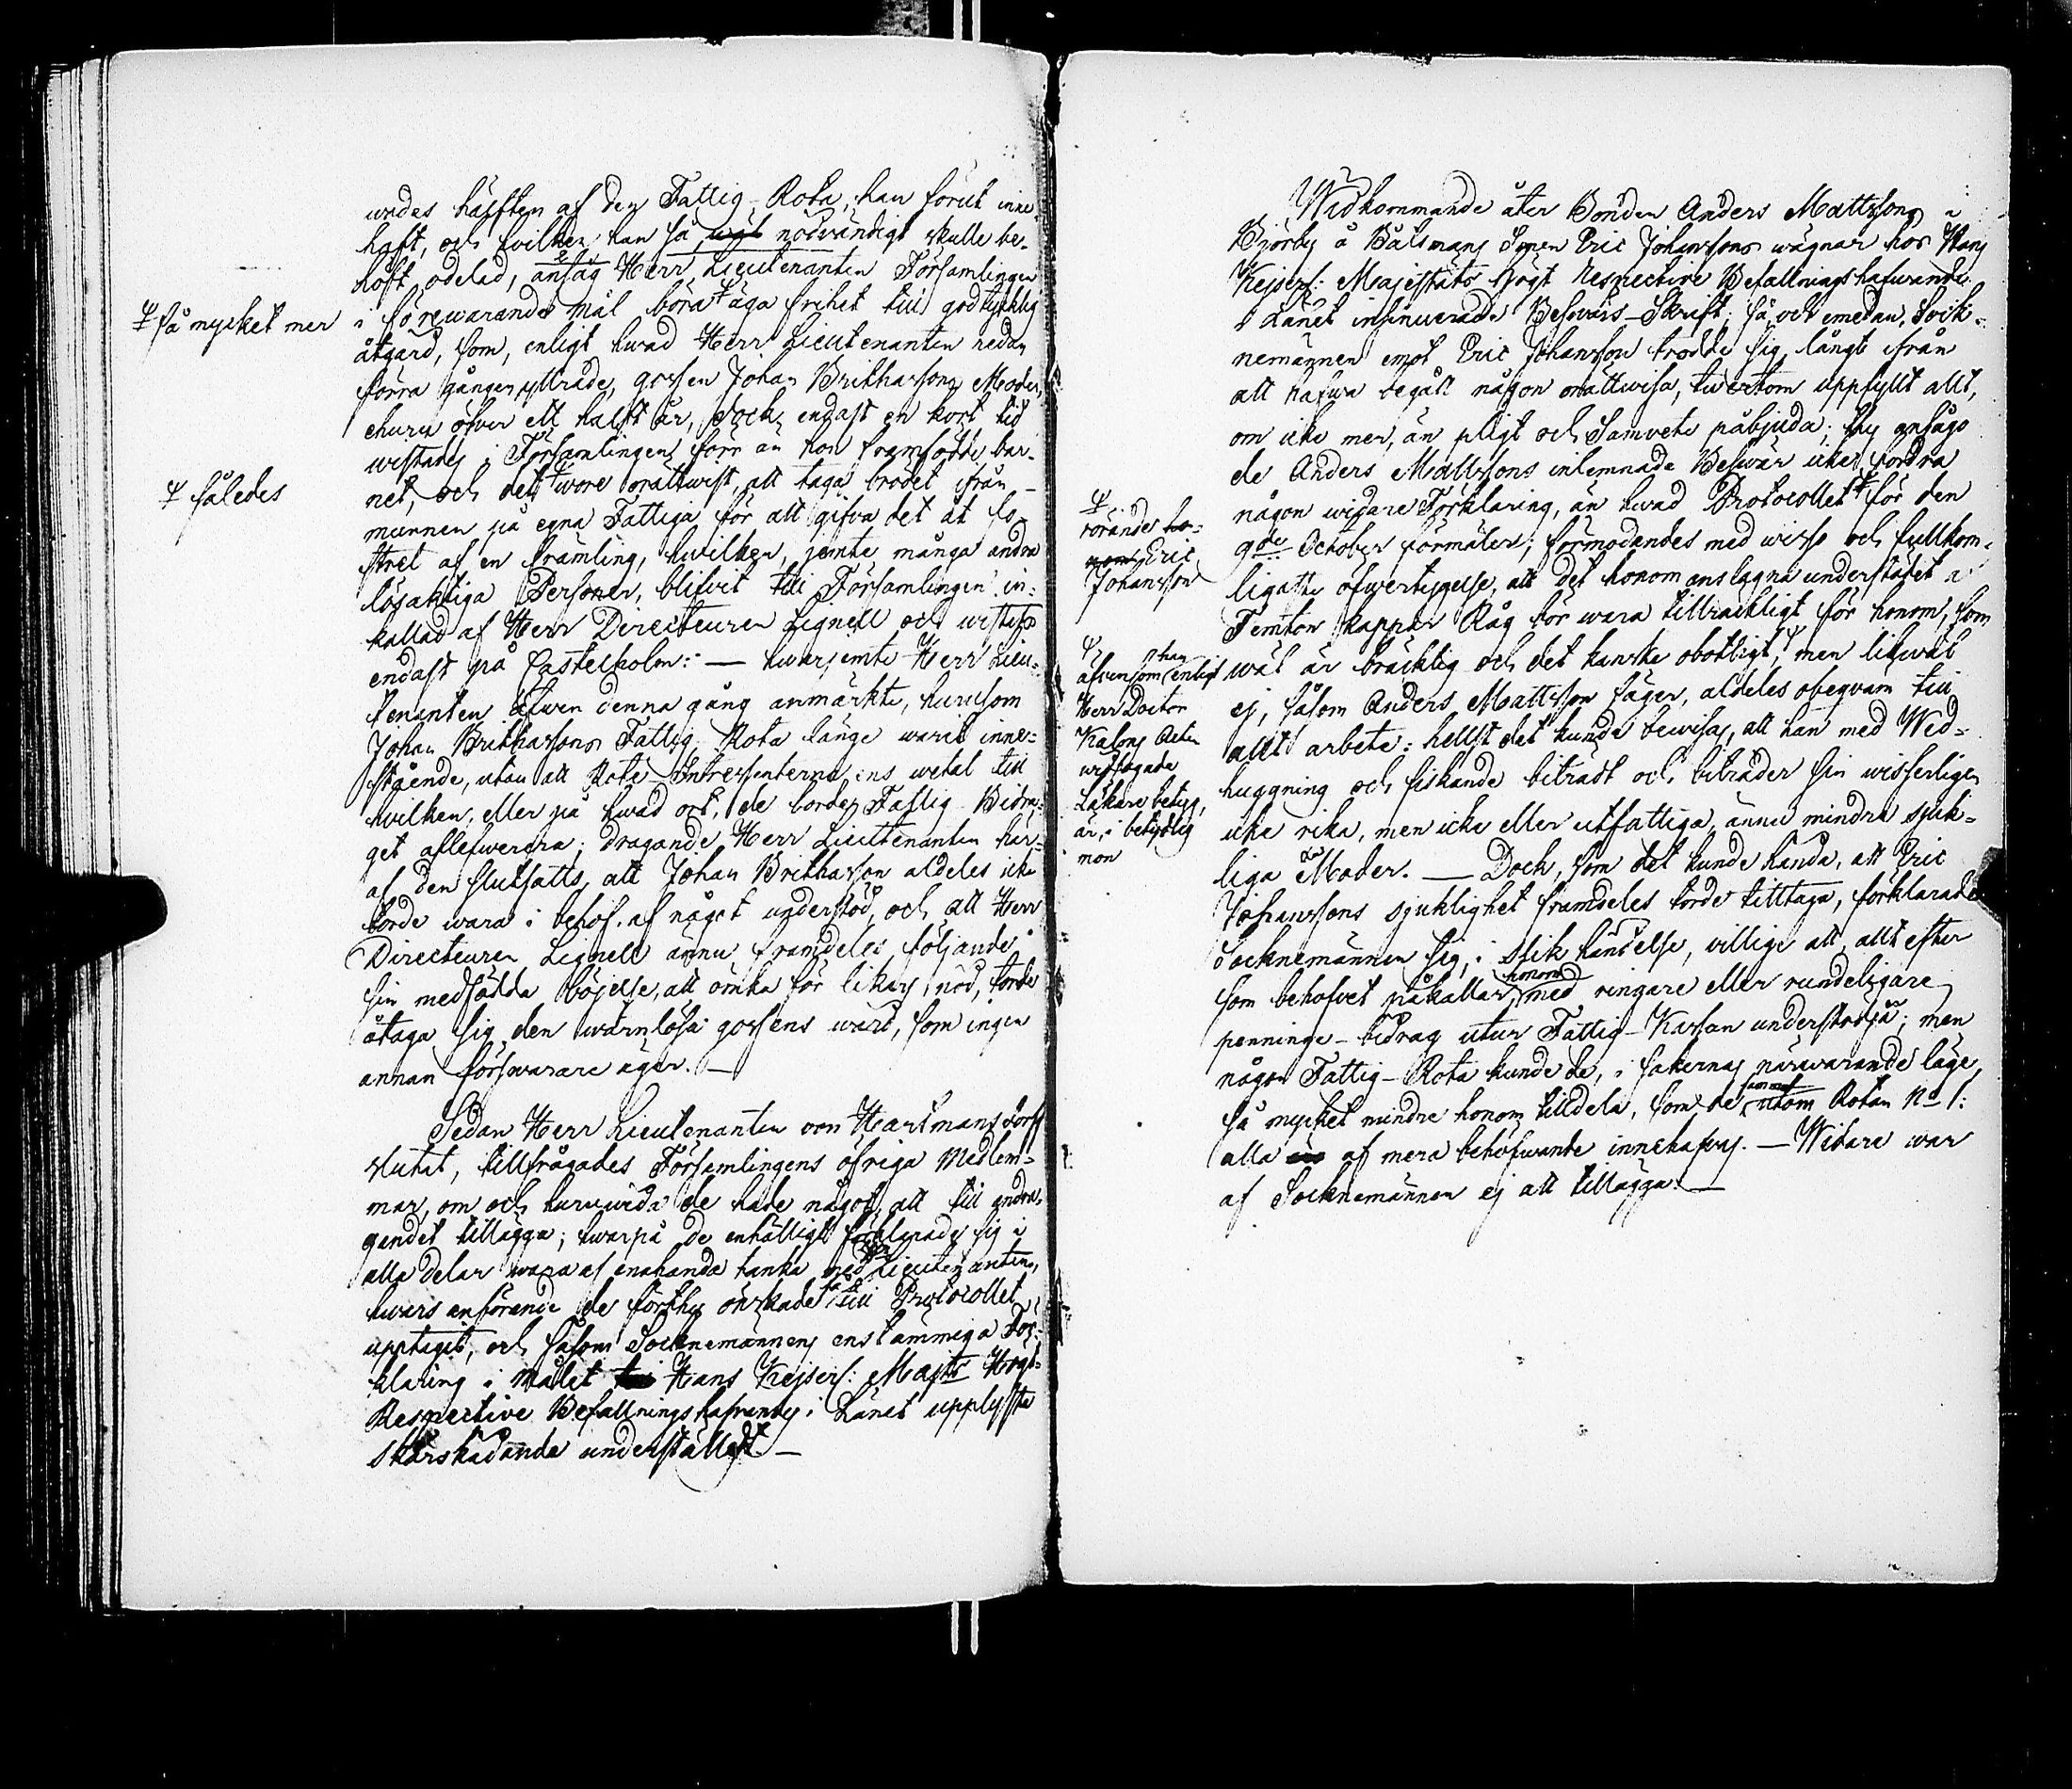 wades hälften af den Fattig-Rota, han förut inne-
haft, och hvilken han så wäl nödvändigt skulle be-
höft odelad, ansåg Herr Lieutenanten Församlingen
i förewarande mål böra äga frihet till godtycklig
så mycket mer
åtgärd, som, enligt hwad Herr Lieutenanten redan
förra gången yttrade, gossen Johan Britharsons Moder,
ehuru öfver ett halft år, dock endast en kort tid
wistats i Församlingen förr än hon framfödde bar-
net, och det wore orättwist att taga brödet ifrån
således
munnen på egna Fattiga för att gifva det åt fo-
stret af en främling, hwilken, jemte många andra
lösaktiga Personer, blifvit till Församlingen in-
kallad af Herr Directeuren Lignell och wistats
endast på Castelholm: — hwarjemte Herr Lieu-
tenanten äfwen denna gång anmärkte, hurusom
Johan Britharsons Fattig Rota länge warit inne-
stående, utan att Rote-Intressenterna ens wetat till
hvilken, eller på hwad ort, de borde Fattig-Bidra-
get aflefwerera; dragande Herr Lieutenanten här-
af den slutsatts, att Johan Britharson aldeles icke
torde wara i behof af något understöd, och att Herr
Directeuren Lignell ännu framdeles, följande
sin medfödda böjelse, att ömka för likars nöd, torde
åtaga sig den wärnlösa gossens wård, som ingen
annan försvarare äger. —
Sedan Herr Lieutenanten von Hartmansdorff
slutat, tillfrågades Församlingens öfriga Medlem-
mar, om och huruwida de hade något, att till andra-
gendet tillägga; hwarpå de enhälligt förklarade sig i
alla delar wara af enahanda tanka med Herr Lieutenanten,
hwars anförande de förthy önskade till Protocollet
upptaget, och såsom Socknemännens enstämmiga För-
klaring i målet Hans Kejserl: Majts Högt-
Respective Befallningshafvandes i Länet upplysta
skärskådande underställdt —
Widkommande åter Bonden Anders Mattssons i
Björby å Båtsmans Sonen Eric Johanssons wägnar hos Hans
Kejserl: Majestäts Högt Respective Befallningshafwande
i Länet insinuerade Beswärs-Skrift; så, och emedan Sock-
nemännen emot Eric Johansson trodde sig långt ifrån
att hafwa begått någon orättwisa, twertom uppfyllt allt,
om icke mer, än pligt och Samvete påbjuda; thy ansågo
de Anders Mattssons inlemnade Beswär icke fordra
någon widare Förklaring, än hwad Protocollet för den
rörande ho-
nom Eric
Johansson
9de October förmäler; förmodendes med wisso och fullkom-
ligaste öfwertygelse, att det honom anslagna understödet a
Femton kappar Råg bör wara tillräckligt för honom, som
wäl är bräcklig och det kanske obotligt, men likwäl
äfvensom han enligt
Herr Doctor
Kalons Acten
widfogade
Läkare betyg,
är, i betydlig
mon
ej, såsom Anders Mattsson säger, aldeles obeqvam till
allt arbete: hellst det kunde bewisas, att han med Wed-
huggning och fiskande biträdt och biträder sin wisserligen
icke rika, men icke eller utfattiga, ännu mindre sjuk-
liga Moder. — Dock, som det kunde hända, att Eric
Johanssons sjuklighet framdeles torde tilltaga, förklarade
Socknemännen sig, i slik händelse, villige att, allt efter
som behofvet påkallar, honom med ringare eller rundeligare
penninge-bidrag utur Fattig-Kassan understödja; men
någon Fattig-Rota kunde de, i sakernas närwarande läge
så mycket mindre honom tilldela, som de utom Rotan No 1:
alla af mera behöfwande innehafvas. — Widare war
af Socknemännen ej att tillägga. —